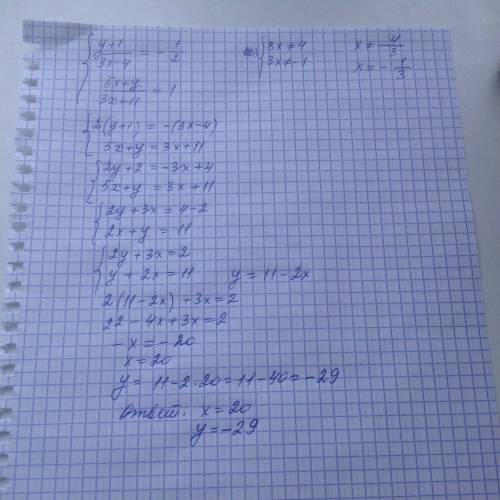 { (y+1)/(3x-4) = -1/2   ОДЗ: { 3x≠4   x≠4/3
(5x+y)/(3x+11) = 1   3x≠-1   x=-1/3
{ 2(y+1) = -(3x-4)
5x+y = 3x+11
{ 2y+2 = -3x+4
5x+y = 3x+11
{ 2y+3x = 4-2
2x+y = 11
{ 2y+3x = 2
y+2x = 11   y = 11-2x
2(11-2x)+3x=2
22-4x+3x=2
-x=-20
x=20
y= 11-2·20=11-40=-29
Ответ: x=20
y=-29